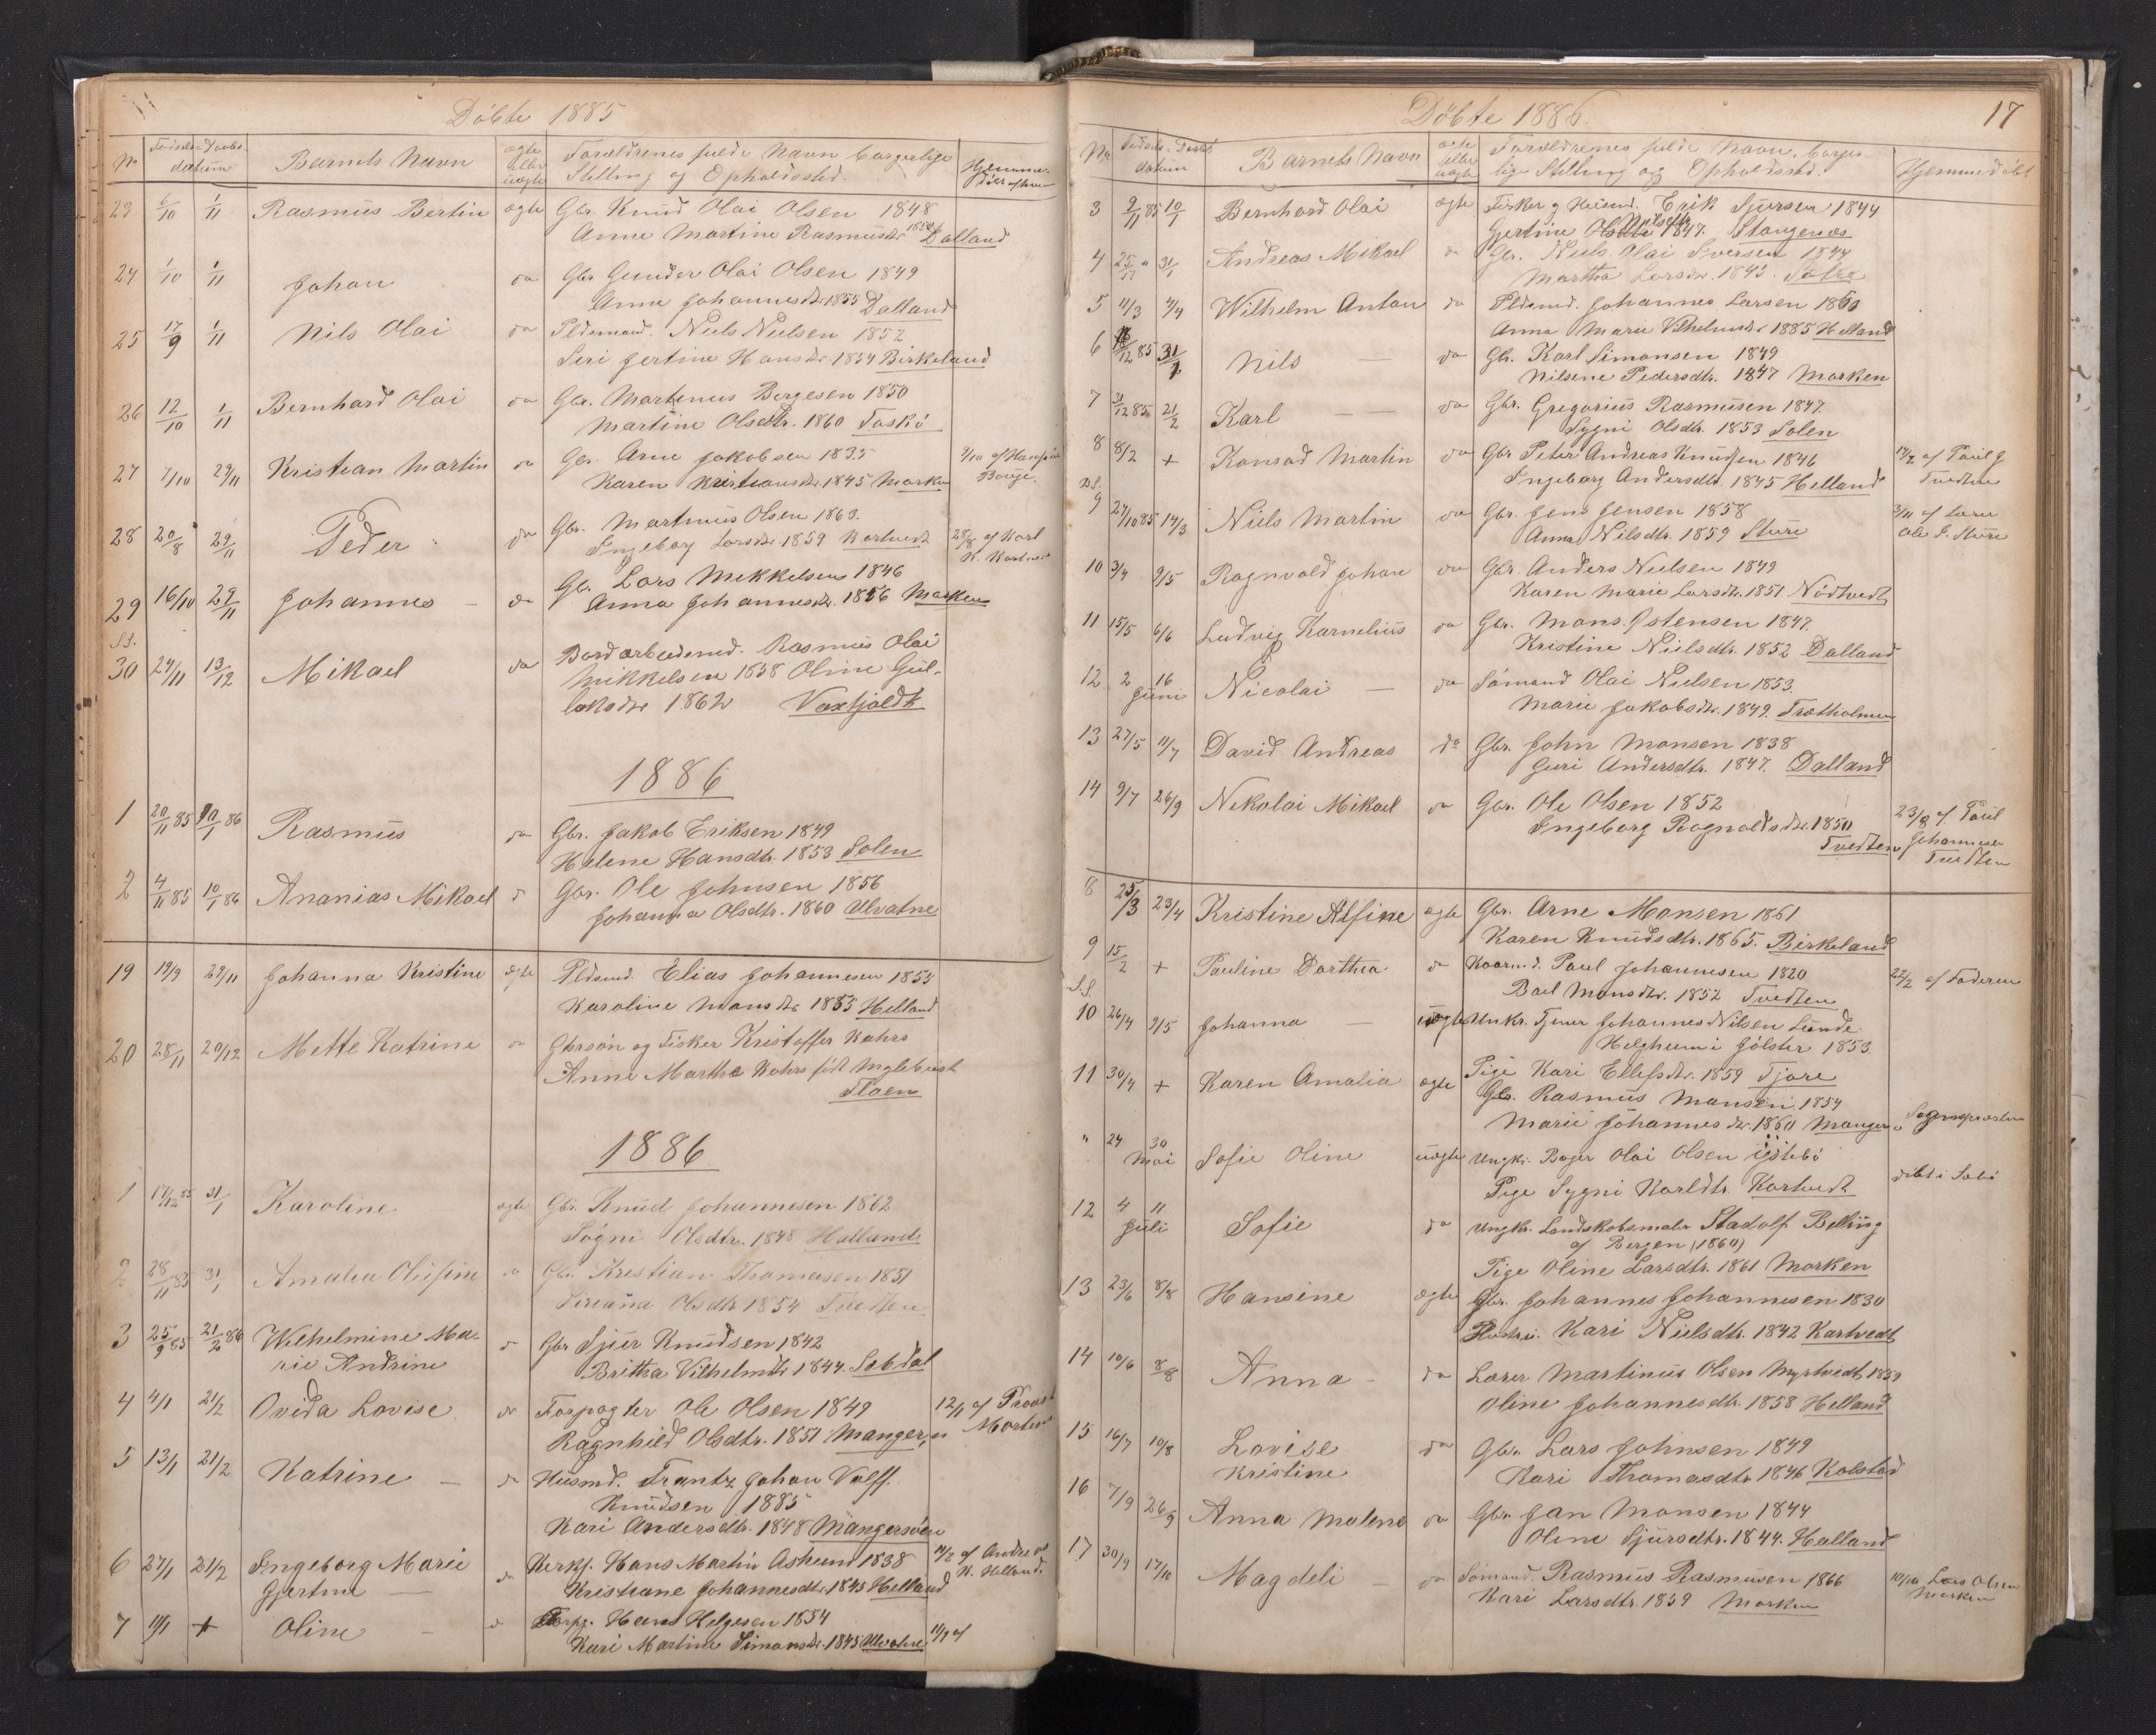 Döbte 1885
No Fødsels- Daabs- datum Barnets Navn ægte eller uægte Forældrenes fulde Navn borgerlige Stilling og Opholdssted. Hjemme-
23 6/10 1/11 Rasmus Bertin ægte Gbr. Knud Olai Olsen 1848
Anne Martine Rasmusdtr 1850 Dalland
24 1/10 1/11 Johan do Gbr Gunder Olai Olsen 1849
Anna Johannesdtr 1855 Dalland
25 17/9 1/11 Nils Olai do Pldsmand. Niels Nielsen 1852
Seri Gertine Hansdtr 1854 Birkeland
26 12/10 1/11 Bernhard Olai do Gbr. Martinus Börgesen 1850
Martine Olsdtr. 1860 Toskö
27 7/10 29/11 Kristian Martin do Gbr. Arne Jakobsen 1835
Karen Kristiansdtr. 1845 Marken
28 20/8 29/11 Peder do Gbr. Martinus Olsen 1863.
Ingeborg Larsdtr 1859 Kartvedt 28/8 af Karl
29 16/10 29/11 Johannes – do Gbr. Lars Mikkelsen 1846
Anna Johannesdtr. 1856 Marken
30 24/11 13/12 Mikael do Bordarbeidsmd. Rasmus Olai
Mikkelsen 1858 Oline Gul-
laksdtr 1862 Voxtjoldt
1886
1 20/11 85 10/1 86 Rasmus do Gbr. Jakob Eriksen 1849
Helene Hansdtr. 1853 Solen
2 4/11 85 10/1 86 Ananias Mikael d Gbr. Ole Johnsen 1856
Johanna Olsdtr. 1860 Ulvatne
19 19/9 29/11 Johanna Kristine ægte Pldsmd Elias Johannesen 1855
Karoline Monsdtr 1853 Helland
20 28/11 20/12 Mette Katrine do Gbrsøn og Fisker Kristoffer Kahrs
Anne Marthe Kahrs født Myklebust
Floen
1886
1 17/12 85 31/1 Karoline ægte Gbr. Knud Johannesen 1862
Sögni Olsdtr. 1848 Halland
2 28/11 85 31/1 Amalia Olufine do Gbr. Kristian Thomasen 1851
Siviana Olsdtr 1854 Tvedten
3 25/9 85 21/2 86 Wilhelmine Ma-
rie Andrine d Gbr Sjur Knudsen 1842
Britha Vilhelmdtr 1844. Sæbdal
4 4/1 21/2 Ovida Lovise do Forpagter Ole Olsen 1849 12/1 af Provst
Ragnhild Olsdtr. 1851 Manger
5 13/1 21/2 Katrine – do Husmd. Frantz Johan Volff.
Knudsen 1885
Kari Andersdtr. 1848 Mangersøen
6 27/1 21/2 Ingeborg Marie
Gjertine – do Kirkj. Hans Martin Askeland 1838
Kristiane Johannesdtr. 1845 Helland
7 11/1 + Oline – d Forpg. Hans Helgesen 1854
Kari Martine Simonsdtr. 1845 Ulvatne 11/1 af
Döbte 1886. 17
No Fødsels- Daabs datum Barnets Navn ægte eller uægte Forældrenes fulde Navn, borger-
lige Stilling og Opholdssted. Hjemmedøbt
3 9/11 85 10/1 Bernhard Olai ægte Fisker og Husmd. Erik Sjursen 1844
Gertine 1847. Stangenæs
4 31/1 Andreas Mikael do Gbr. Niels Olai Iversen 1844
Martha Larsdtr. 1843.
5 11/3 4/4 Wilhelm Anton do Pldsmd. Johannes Larsen 1860
Anna Marie Vilhelmsdtr 1885 Helland
6 12 85 31/1 Nils – do Gbr. Karl Simonsen 1849
Nilsine Pedersdtr. 1847 Marken
7 31/12 85 21/2 Karl – – do Gbr. Gregorius Rasmusen 1847.
Sygni Olsdtr. 1853 Solen
8 8/2 + Konrad Martin do Gbr Peter Andreas Knudsen 1846
Ingeborg Andersdtr. 1845 Helland Tvedten
9 27/10 85 14/3 Niels Martin do Gbr. Jens Jensen 1858
Anna Nilsdtr. 1859 Sture Ole J. Sture
10 3/4 9/5 Ragnvald Johan do Gbr. Anders Nielsen 1849
Karen Marie Larsdtr. 1851 Nödtvedt
11 15/5 6/6 Ludvig Kornelius do Gbr. Mons Østensen 1847.
Kristine Nielsdtr. 1852 Dalland
12 2 16
Juni Nicolai – do Sömand Olai Nielsen 1853.
Marie Jakobsdtr. 1849. Trætholmen
13 27/5 11/7 David Andreas do Gbr. John Monsen 1838
Guri Andersdtr. 1847. Dalland
14 9/7 26/9 Nikolai Mikael do Gbr. Ole Olsen 1852
Ingeborg Ragnvaldsdtr. 1850
Tvedten 23/8 af. Paul
Johannesen
Tvedten
8 25/3 23/4 Kristine Alfine ægte Gbr. Arne Monsen 1861
Karen Knudsdtr. 1865. Birkeland
9 15/2 + Pauline Dorthea do Kaarmd. Paul Johannesen 1820
Monsdtr. 1852 Tvedten 22/2 af Faderen
10 26/4 9/5 Johanna – uægte Unkr. Tjener Johannes Nilsen Lunde
Helgheim i Jölster 1853.
Pige Kari Ellefsdtr. 1859 Fjære
11 30/4 + Karen Amalia ægte Gbr. Rasmus Monsen 1854
Marie Johannesdtr. 1860 Manger Sognepresten
" 24 30
Mai Sofie Oline uægte Ungkr. Bager Olai Olsen
Pige Sygni Karldtr. Kartvedt
12 4 11
Juli Sofie do Ungkr. Landskabsmaler Stadolf Belling
af Bergen (1860)
Pige Oline Larsdtr. 1861 Marken
13 23/6 8/8 Hansine ægte Gbr. Johannes Johannesen 1830
Hustru. Kari Nielsdtr. 1842 Kartvedt
14 10/6 8/8 Anna – do Lærer Martinus Olsen Myrtvedt 1859
Oline Johannesdtr. 1858 Helland
15 16/7 10/8 Lovise
Kristine do Gbr. Lars Johnsen 1849
Kari Thomasdtr 1846 Kolstad
16 7/9 26/9 Anna Malene do Gbr. Jan Monsen 1844
Oline Sjursdtr. 1844. Halland
17 30/9 17/10 Magdeli – do Sömand. Rasmus Rasmusen 1866
Kari Larsdtr. 1859 Marken Lars Olsen
Marken